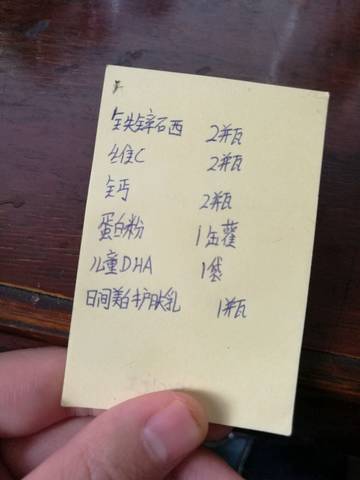 铁锌石西 2瓶
维C 2瓶
钙 2瓶
蛋白粉 1罐
儿童DHA 1袋
日间美白护肤乳 1瓶